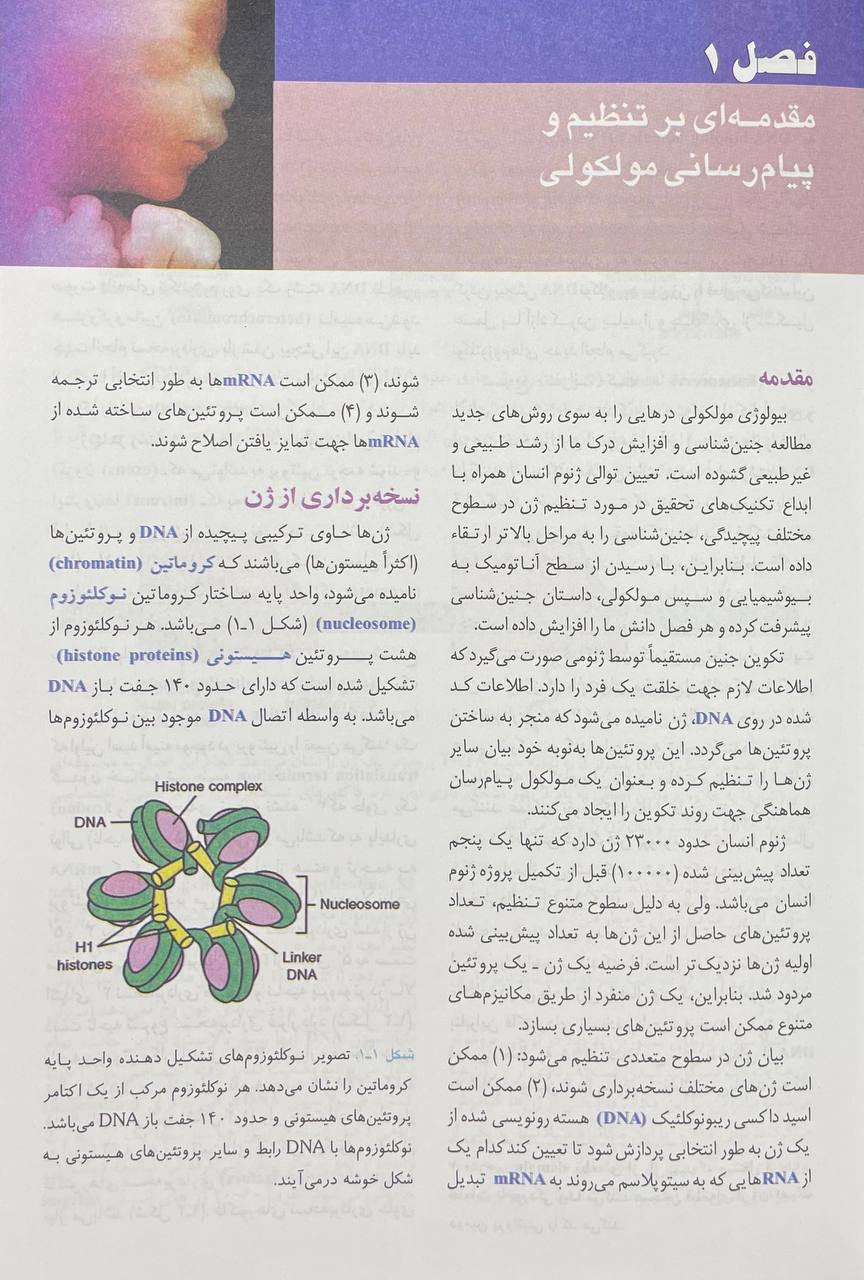 فصل ۱
مقدمه‌ای بر تنظیم و
پیام‌رسانی مولکولی
مقدمه
بیولوژی مولکولی درهایی را به سوی روش‌های جدید
مطالعه جنین‌شناسی و افزایش درک ما از رشد طبیعی و
غیرطبیعی گشوده است. تعیین توالی ژنوم انسان همراه با
ابداع تکنیک‌های تحقیق در مورد تنظیم ژن در سطوح
مختلف پیچیدگی، جنین‌شناسی را به مراحل بالاتر ارتقاء
داده است. بنابراین، با رسیدن از سطح آناتومیک به
بیوشیمیایی و سپس مولکولی، داستان جنین‌شناسی
پیشرفت کرده و هر فصل دانش ما را افزایش داده است.
تکوین جنین مستقیماً توسط ژنومی صورت می‌گیرد که
اطلاعات لازم جهت خلقت یک فرد را دارد. اطلاعات کد
شده در روی DNA، ژن نامیده می‌شود که منجر به ساختن
پروتئین‌ها می‌گردد. این پروتئین‌ها به‌نوبه خود بیان سایر
ژن‌ها را تنظیم کرده و بعنوان یک مولکول پیام‌رسان
هماهنگی جهت روند تکوین را ایجاد می‌کنند.
ژنوم انسان حدود ۲۳۰۰۰ ژن دارد که تنها یک پنجم
تعداد پیش‌بینی شده (۱۰۰۰۰۰) قبل از تکمیل پروژه ژنوم
انسان می‌باشد. ولی به دلیل سطوح متنوع تنظیم، تعداد
پروتئین‌های حاصل از این ژن‌ها به تعداد پیش‌بینی شده
اولیه ژن‌ها نزدیک‌تر است. فرضیه یک ژن ـ یک پروتئین
مردود شد. بنابراین، یک ژن منفرد از طریق مکانیزم‌های
متنوع ممکن است پروتئین‌های بسیاری بسازد.
بیان ژن در سطوح متعددی تنظیم می‌شود: (۱) ممکن
است ژن‌های مختلف نسخه‌برداری شوند، (۲) ممکن است
اسید داکسی ریبونوکلئیک (DNA) هسته رونویسی شده از
یک ژن به طور انتخابی پردازش شود تا تعیین کند کدام یک
از RNAهایی که به سیتوپلاسم می‌روند به mRNA تبدیل
شوند، (۳) ممکن است mRNAها به طور انتخابی ترجمه
شوند و (۴) ممکن است پروتئین‌های ساخته شده از
mRNAها جهت تمایز یافتن اصلاح شوند.
نسخه‌برداری از ژن
ژن‌ها حاوی ترکیبی پیچیده از DNA و پروتئین‌ها
(اکثراً هیستون‌ها) می‌باشند که کروماتین (chromatin)
نامیده می‌شود، واحد پایه ساختار کروماتین نوکلئوزوم
(nucleosome) (شکل ۱-۱) می‌باشد. هر نوکلئوزوم از
هشت پروتئین هیستونی (histone proteins)
تشکیل شده است که دارای حدود ۱۴۰ جفت باز DNA
می‌باشد. به واسطه اتصال DNA موجود بین نوکلئوزوم‌ها
Histone complex
DNA
Nucleosome
H1
histones
Linker
DNA
شکل ۱-۱. تصویر نوکلئوزوم‌های تشکیل دهنده واحد پایه
کروماتین را نشان می‌دهد. هر نوکلئوزوم مرکب از یک اکتامر
پروتئین‌های هیستونی و حدود ۱۴۰ جفت باز DNA می‌باشد.
نوکلئوزوم‌ها با DNA رابط و سایر پروتئین‌های هیستونی به
شکل خوشه درمی‌آیند.